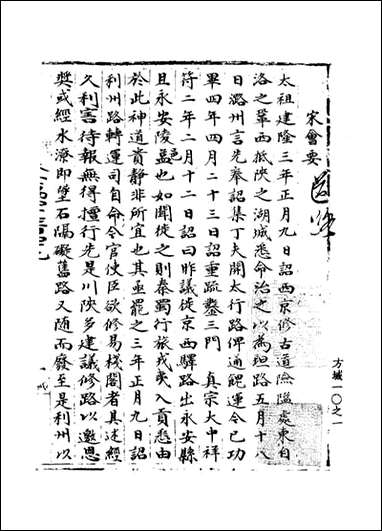 宋會要
道路
太祖建隆三年正月九日詔西京修古道險隘處東自
洛之鞏西抵陜之湖城悉命治之以為坦路五月十八
日潞州言先奉詔集丁夫開太行路俾通餽運今已功
畢四年四月二十三日詔重疏鑿三門　真宗大中祥
符二年二月十二日詔曰昨議徙京西驛路出永安縣
且永安陵邑也如聞徙之則秦蜀行旅戎夷入貢悉由
於此神道貴靜非所宜也其亟罷之三年正月九日詔
利州路轉運司自今命官使臣欲修易棧閣者具述經
久利害待報無得擅行先是川陜多建議修路以邀恩
奬或經水潦即墜石隔礙舊路又隨而廢至是利州以
方域一〇之一